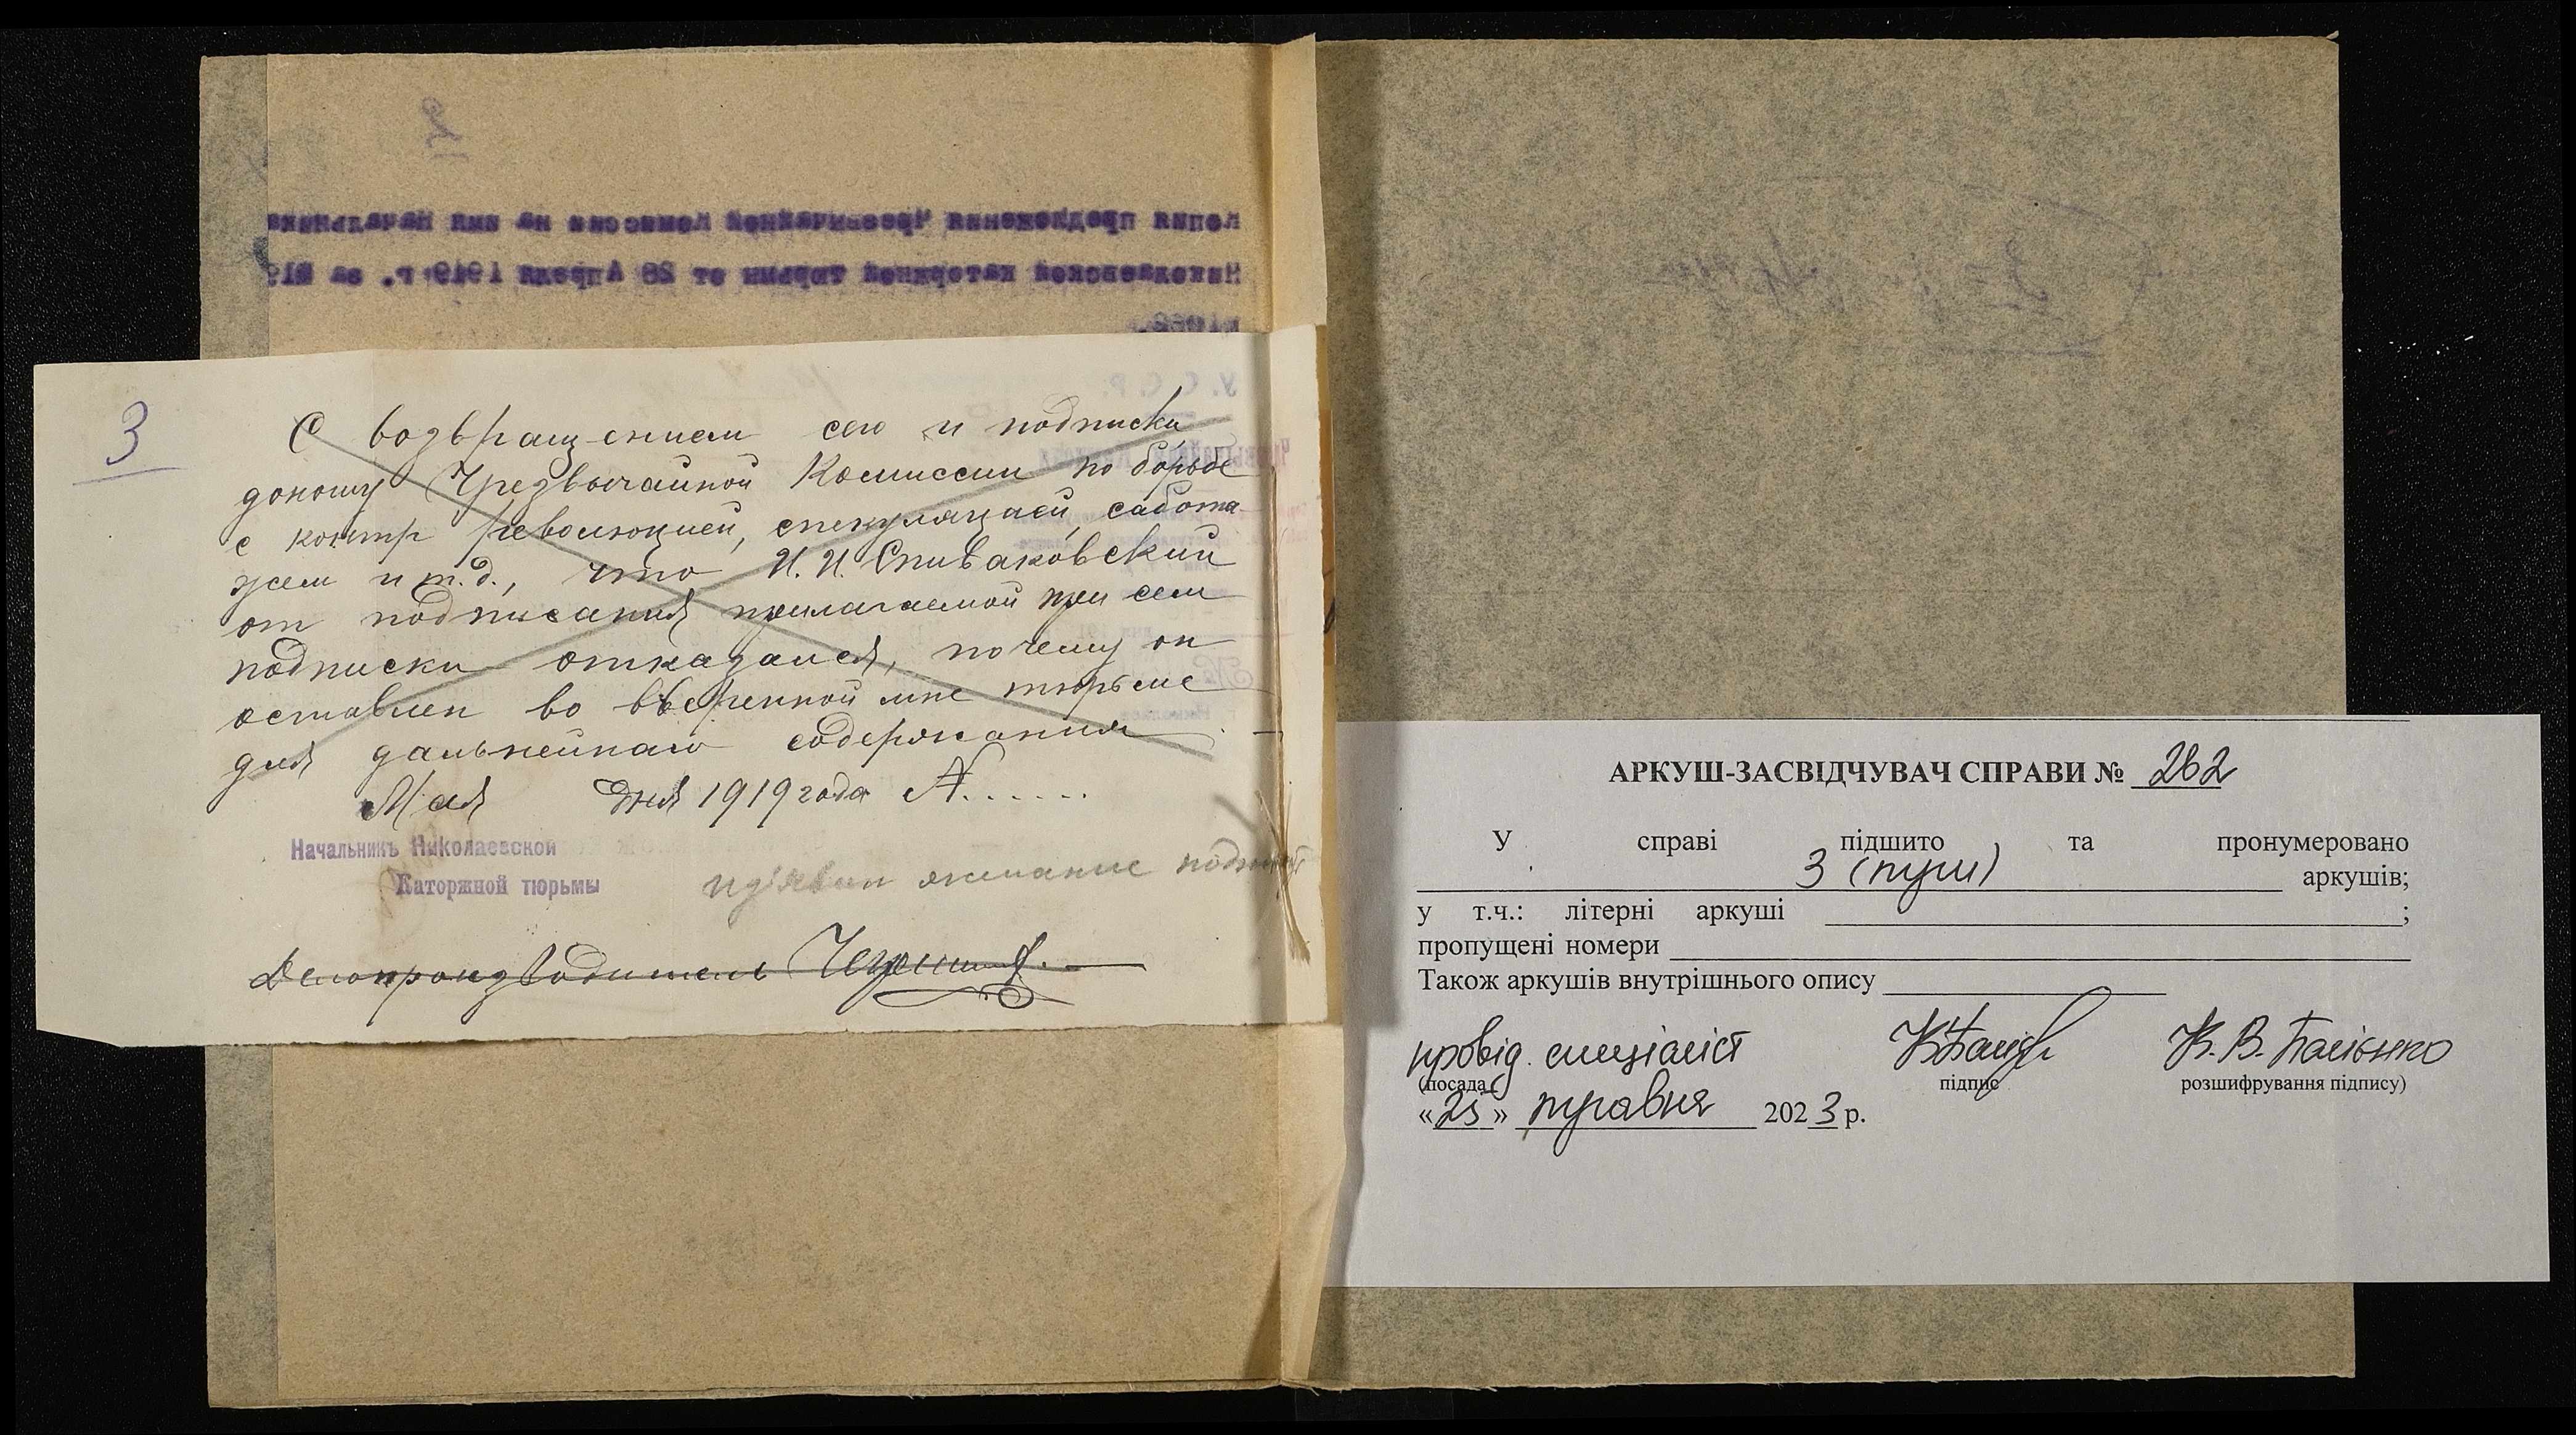 3
С возвращением сего и подписки
доношу Чрезвычайной Комиссии по борьбе
с контр революцией, спекуляцией, сабота-
жем и т.д., что И. И. Спиваковский
от подписания прилагаемой при сем
подписки отказался, почему он
оставлен во вверенной мне тюрьме
для дальнейшаго содержания.
Мая дня 1919 года №......
Начальникъ Николаевской
Каторжной тюрьмы
изъявил желание
Делопроизводитель
2
Копия предложения Чрезвычайной Комиссии на имя Начальника
Николаевской каторжной тюрьмы от 28 Апреля 1919 г. за №19
У. С. С. Р.
АРКУШ-ЗАСВІДЧУВАЧ СПРАВИ № 262
У справі підшито та пронумеровано
3 (три) аркушів;
у т.ч.: літерні аркуші ;
пропущені номери
Також аркушів внутрішнього опису
провід. спеціаліст К. В. Балісько
(посада підпис розшифрування підпису)
«25» травня 2023 р.